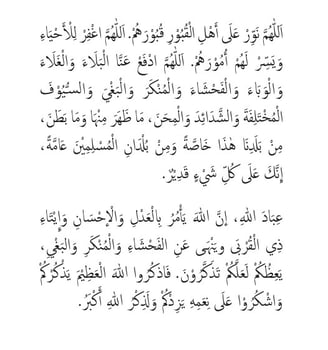 اَللّٰهُمَّ نَوِّرْ عَلَى أَهْلِ الْقُبُوْرِ قُبُوْرَهُمْ. اَللّٰهُمَّ اغْفِرْ لِلْأَحْيَاءِ
وَيَسِّرْ لَهُمْ أُمُوْرَهُمْ. اَللّٰهُمَّ ادْفَعْ عَنَّا الْبَلَاءَ وَالْغَلَاءَ
وَالْوَبَاءَ وَالْفَحْشَاءَ وَالْمُنْكَرَ وَالْبَغْيَ وَالسُّيُوْفَ
الْمُخْتَلِفَةَ وَالشَّدَائِدَ وَالْمِحَنَ، مَا ظَهَرَ مِنْهَا وَمَا بَطَنَ،
مِنْ بَلَدِنَا هٰذَا خَاصَّةً وَمِنْ بُلْدَانِ الْمُسْلِمِيْنَ عَامَّةً،
إِنَّكَ عَلَى كُلِّ شَيْءٍ قَدِيْرٌ.
عِبَادَ اللهِ، إنَّ اللهَ يَأْمُرُ بِالْعَدْلِ وَالْإحْسَانِ وَإِيْتَاءِ
ذِي الْقُرْبَى ويَنْهَى عَنِ الفَحْشَاءِ وَالْمُنْكَرِ وَالبَغْيِ،
يَعِظُكُمْ لَعَلَّكُمْ تَذَكَّرُوْنَ. فَاذكُرُوا اللهَ الْعَظِيْمَ يَذْكُرْكُمْ
وَاشْكُرُوْا عَلَى نِعَمِهِ يَزِدْكُمْ وَلَذِكْرُ اللهِ أَكْبَرُ.